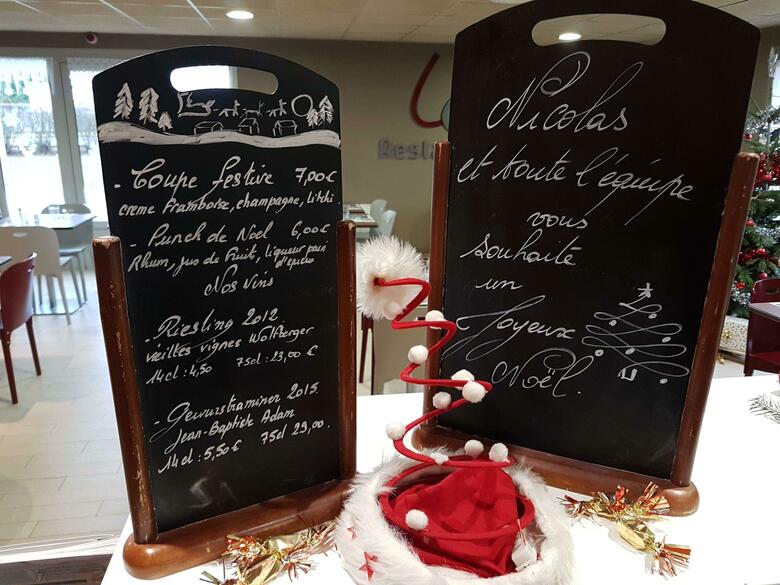 - Coupe festive 7,00€
creme framboise, champagne, litchi
- Punch de Noël 6,00€
Rhum, jus de fruit, liqueur pain
d'épices
Nos vins
- Riesling 2012
vieilles vignes Wolfberger
14cl : 4,50 75cl : 23,00 €
- Gewurstraminer 2015.
Jean-Baptiste Adam
14cl : 5,50€ 75cl 29,00.
Nicolas
et toute l'équipe
vous
souhaite
un
Joyeux
Noël.